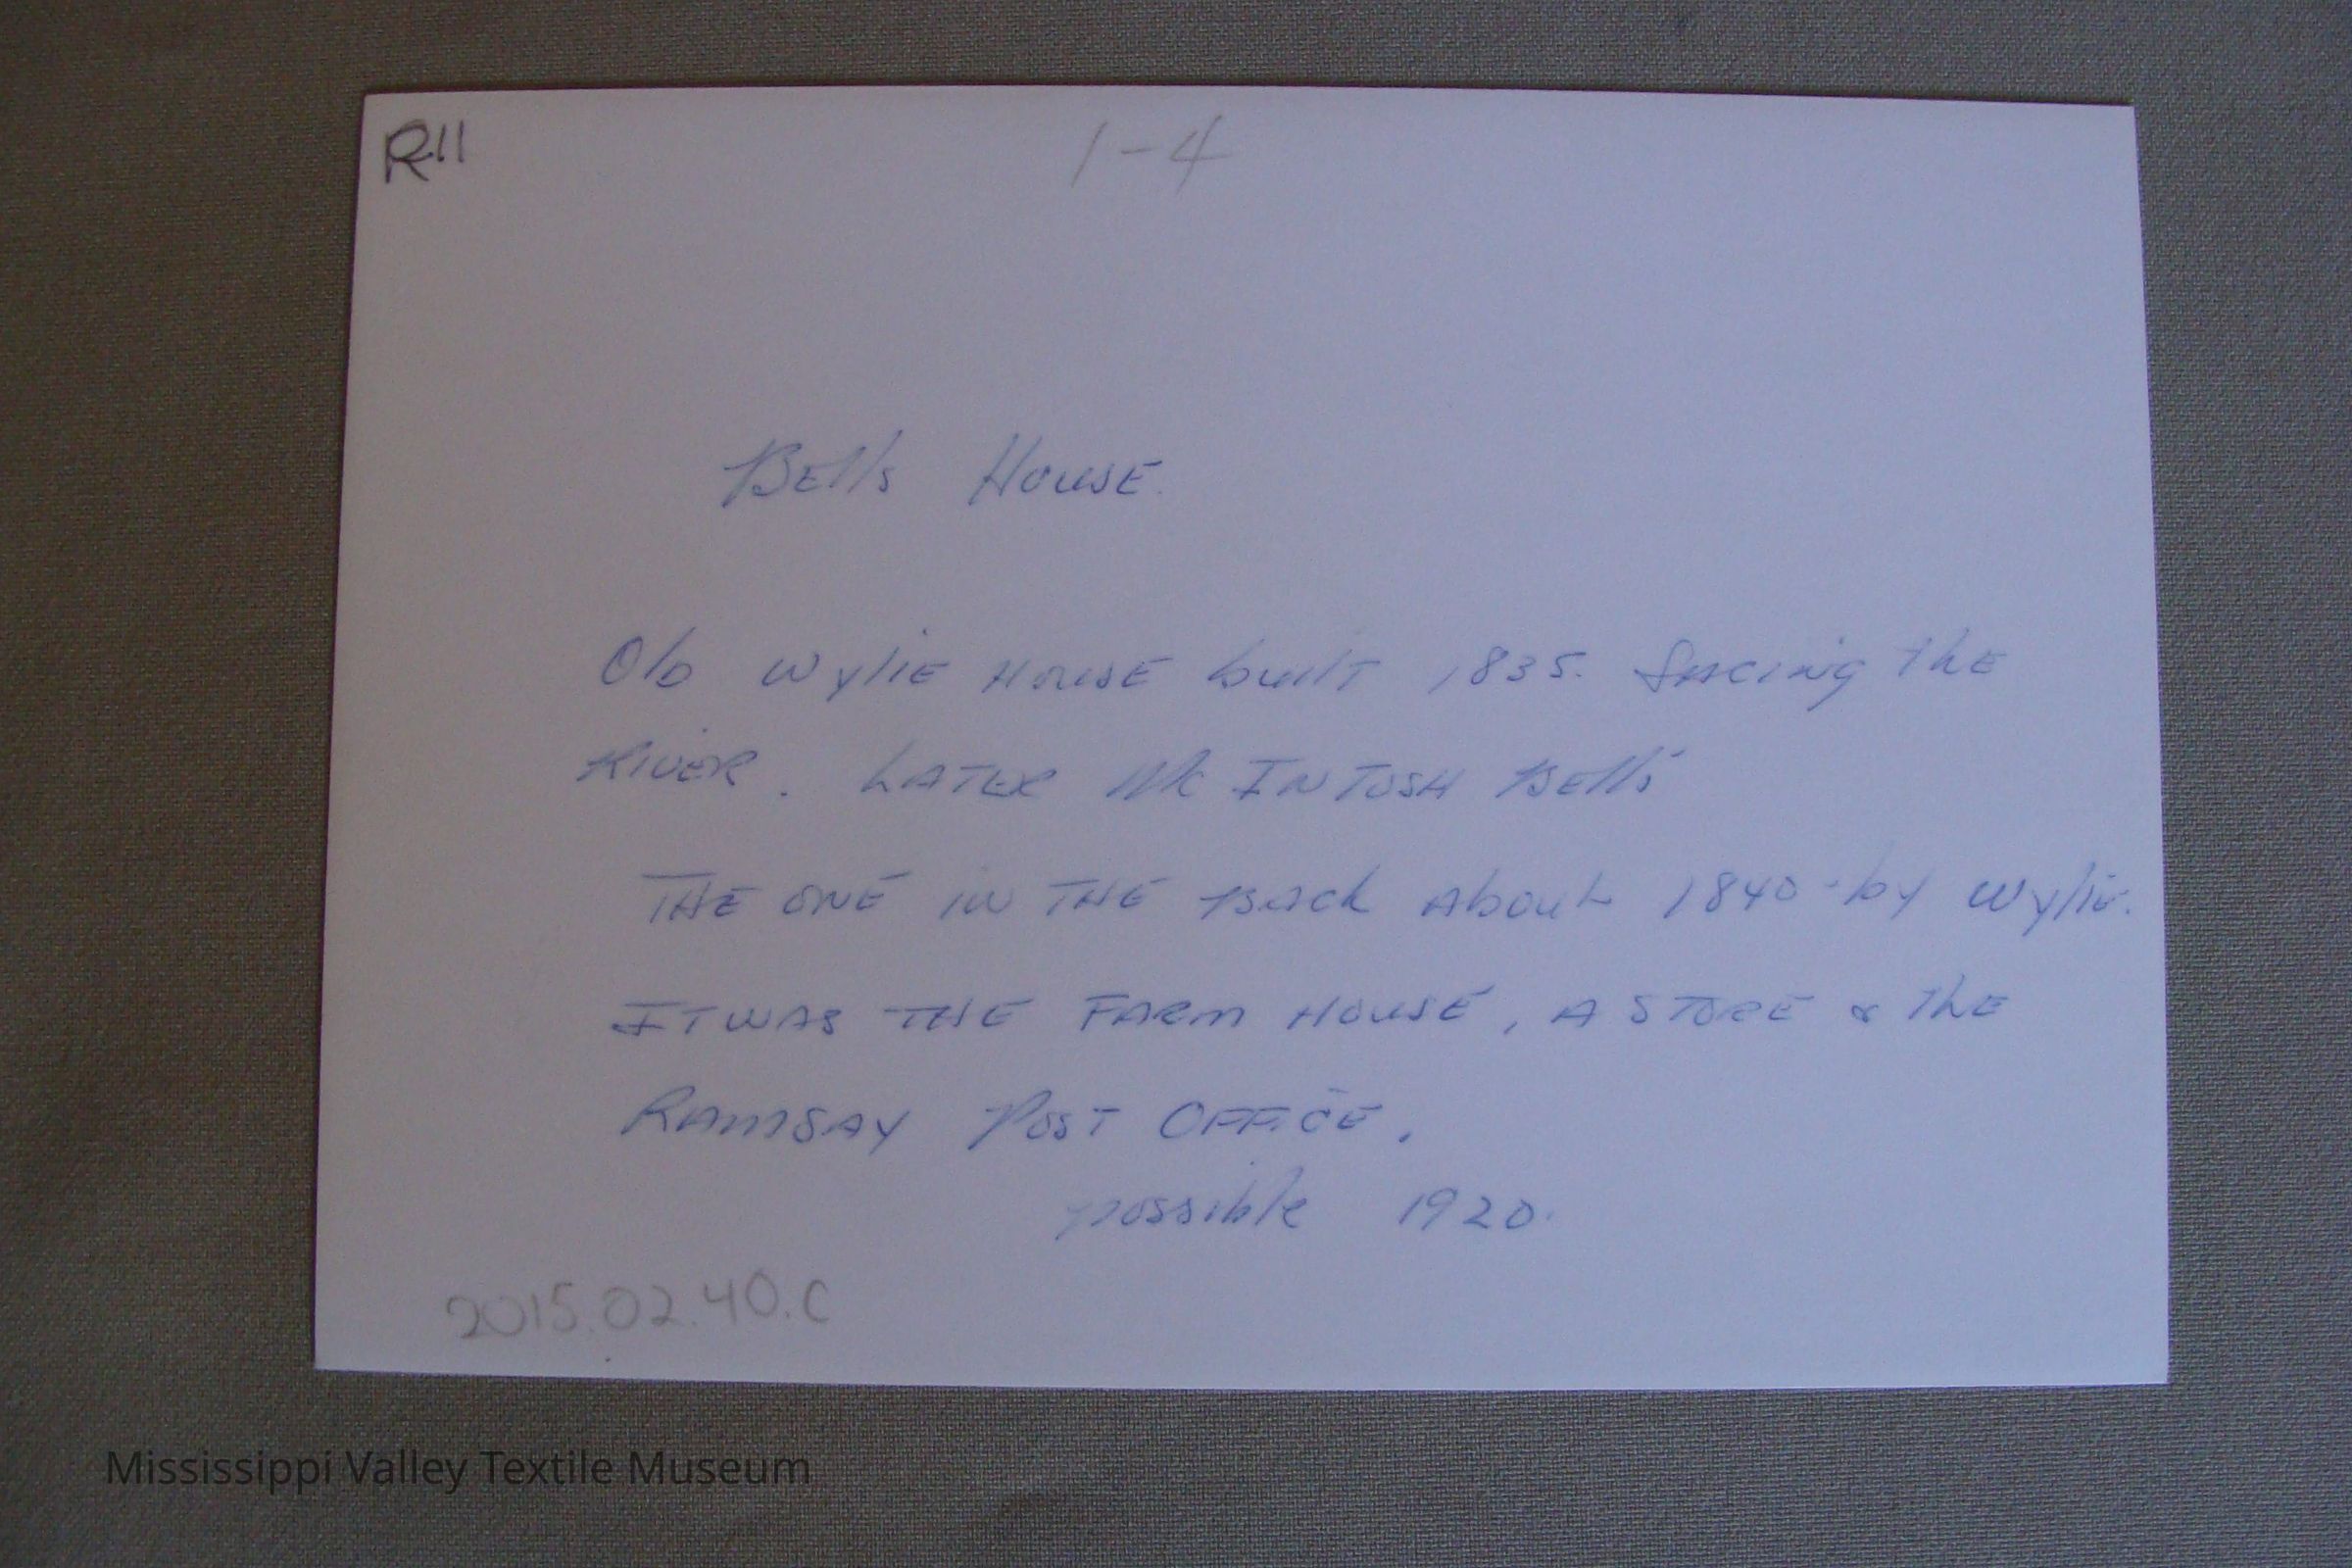 R-11
1-4
Bells House.
Old Wylie House built 1835. facing the
River. Later Mc Intosh Bells
The one in the back about 1840 - by Wylie.
It was the Farm House, A Store & the
Ramsay Post Office.
possible 1920.
2015.02.40.C
Mississippi Valley Textile Museum